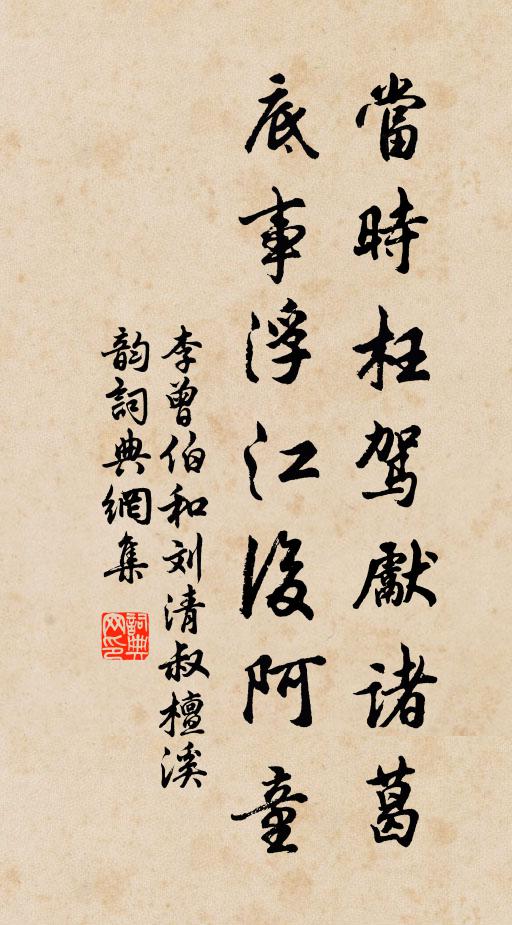 當時枉駕獻諸葛
底事浮江後阿童
李曾伯和刘清叔檀溪
韵詞典網集
詞典网印